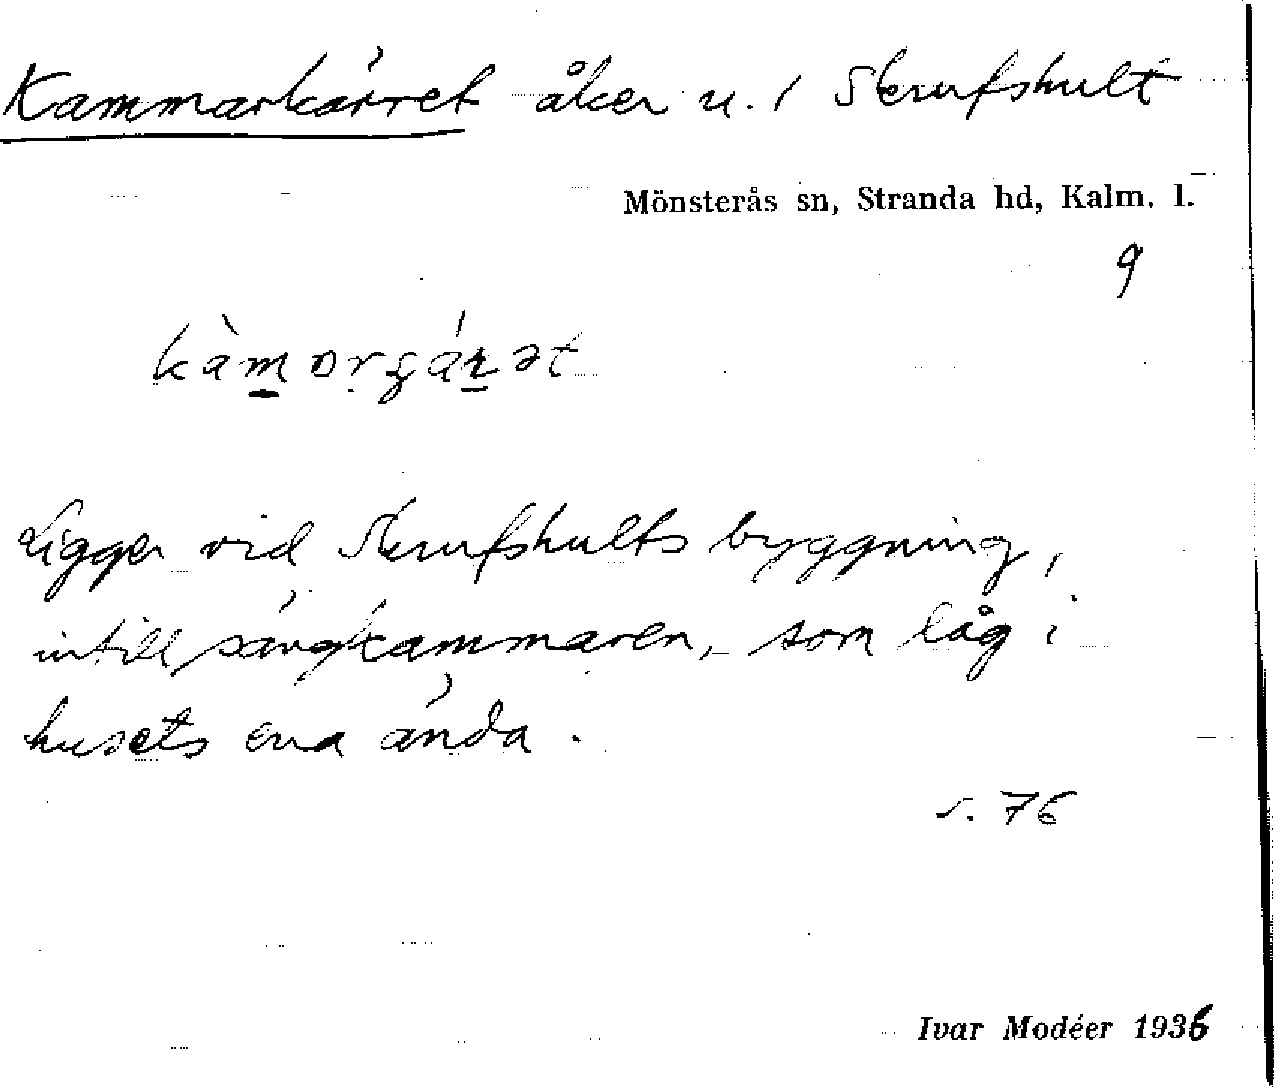 Kammarkärret åker u. 1 Skrufshult
Mönsterås sn, Stranda hd, Kalm. l.
9
Ligger vid Skrufshults byggning,
intill sängkammaren, som låg i
husets ena ända.
s. 76
Ivar Modéer 1936